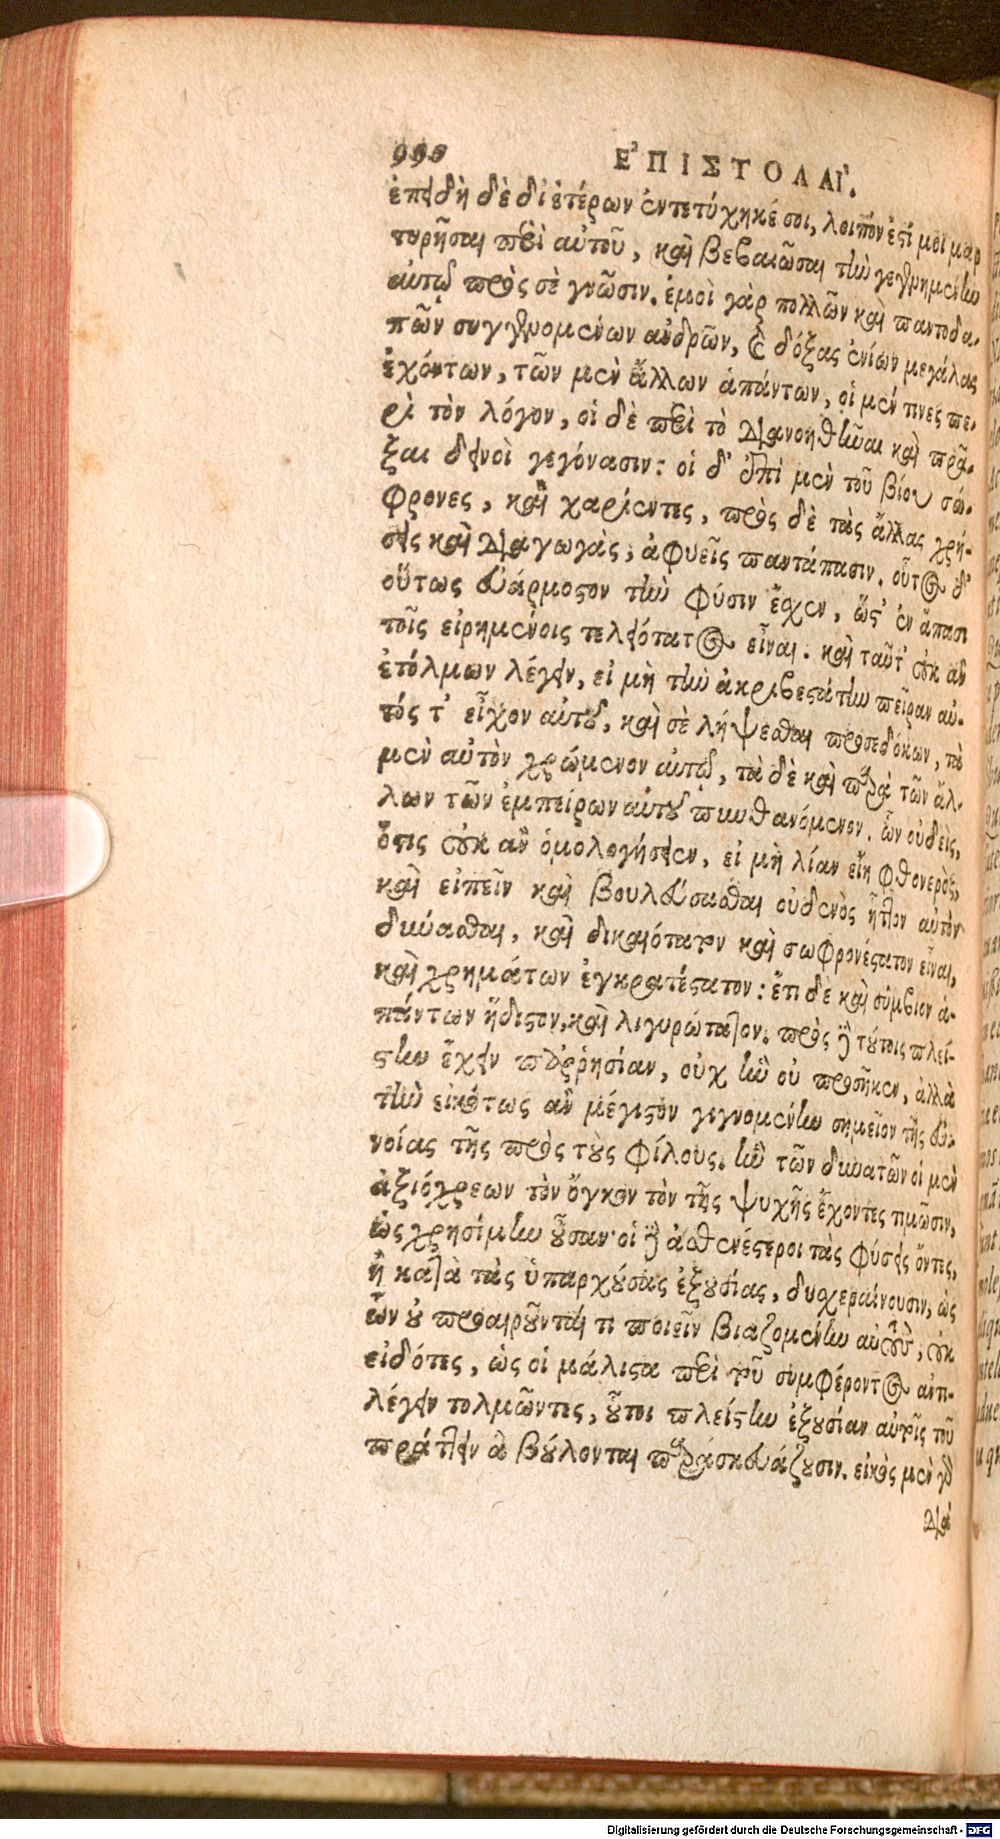 990 ἘΠΙΣΤΟΛΑΊ.
ἐπειδὴ δὲ δι' ἑτέρων ἐντετύχηκέ σοι, λοιπόν ἐστί μοι μαρ
τυρῆσαι περὶ αὐτοῦ, καὶ βεβαιῶσαι τὴν γεγενημένην
αὐτῷ πρὸς σὲ γνῶσιν. ἐμοὶ γὰρ πολλῶν καὶ παντοδα-
πῶν συγγενομένων ἀνδρῶν, καὶ δόξας ἐνίων μεγάλας
ἐχόντων, τῶν μὲν ἄλλων ἁπάντων, οἱ μέν τινες πε-
ρὶ τὸν λόγον, οἱ δὲ περὶ τὸ διανοηθῆναι καὶ πρᾶ-
ξαι δεινοὶ γεγόνασιν: οἱ δ' ἐπὶ μὲν τοῦ βίου σώ-
φρονες, καὶ χαρίεντες, πρὸς δὲ τὰς ἄλλας χρή-
σεις καὶ διαγωγὰς, ἀφυεῖς παντάπασιν. οὗτος δ'
οὕτως εὐάρμοστον τὴν φύσιν ἔχεν, ὥστ' ἐν ἅπασι
τοῖς εἰρημένοις τελειότατος εἶναι. καὶ ταῦτ' οὐκ ἂν
ἐτόλμων λέγειν, εἰ μὴ τὴν ἀκριβεστάτην πεῖραν αὐ-
τός τ' εἶχον αὐτοῦ, καὶ σὲ λήψεσθαι προσεδόκων, τὰ
μὲν αὐτὸν χρώμενον αὐτῷ, τὰ δὲ καὶ παρὰ τῶν ἄλ-
λων τῶν ἐμπείρων αὐτοῦ πυνθανόμενον. ὧν οὐδεὶς,
ὅστις οὐκ ἂν ὁμολογήσειεν, εἰ μὴ λίαν εἴη φθονερὸς,
καὶ εἰπεῖν καὶ βουλεύσασθαι οὐδενὸς ἧττον αὐτὸν
δύνασθαι, καὶ δικαιότατον καὶ σωφρονέστατον εἶναι,
καὶ χρημάτων ἐγκρατέστατον: ἔτι δὲ καὶ σύμβιον ἁ-
πάντων ἥδιστον, καὶ λιγυρώτατον. πρὸς δὲ τούτοις πλεί-
στην ἔχειν παῤῥησίαν, οὐχ ἣν οὐ προσῆκεν, ἀλλὰ
τὴν εἰκότως ἂν μέγιστον γεγνομένην σημεῖον τῆς εὐ-
νοίας τῆς πρὸς τοὺς φίλους. ἣν τῶν δυνατῶν οἱ μὲν
ἀξιόχρεων τὸν ὄγκον τὸν τῆς ψυχῆς ἔχοντες τιμῶσιν,
ὡς χρησίμην οὖσαν· οἱ δὲ ἀσθενέστεροι τὰς φύσεις ὄντες,
ἢ κατὰ τὰς ὑπαρχούσας ἐξουσίας, δυσχεραίνουσιν, ὡς
ὧν οὐ προαιροῦνταί τι ποιεῖν βιαζομένην αὐτοὺς, οὐκ
εἰδότες, ὡς οἱ μάλιστα περὶ τοῦ συμφέροντος ἀντι-
λέγειν τολμῶντες, οὗτοι πλείστην ἐξουσίαν αὐτοῖς τοῦ
πράττειν ἃ βούλονται παρασκευάζουσιν. εἰκὸς μὲν γὰρ
διὰ
Digitalisierung gefördert durch die Deutsche Forschungsgemeinschaft - DFG